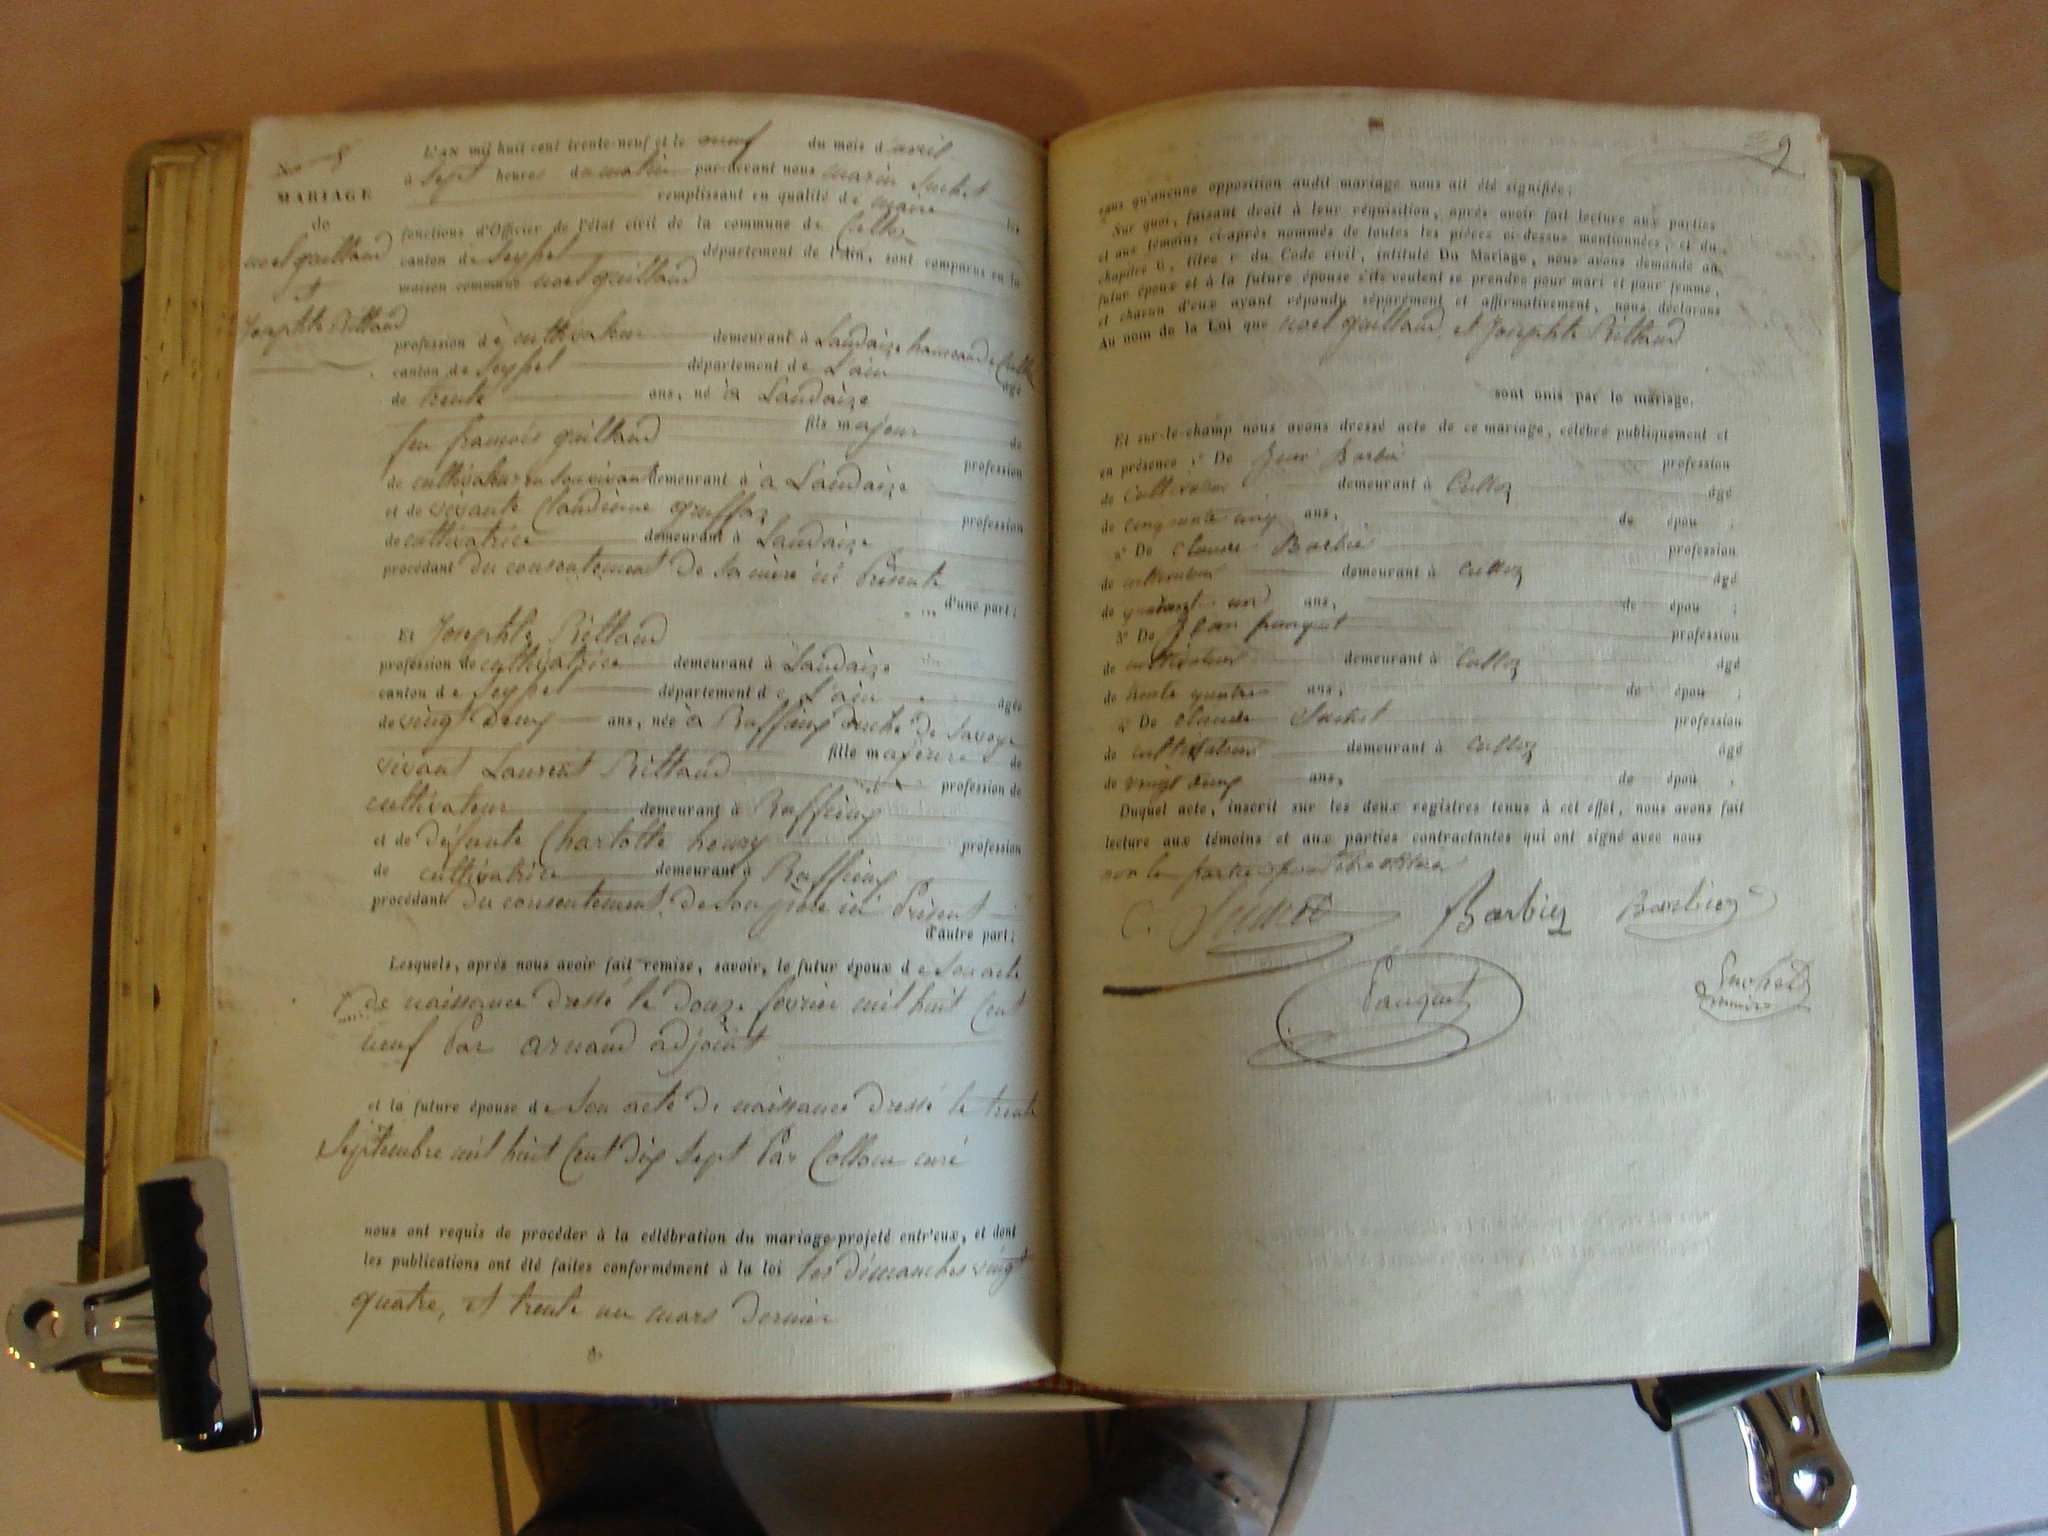 No 8
MARIAGE
de
noel guilland
et
Josephte Rittaud
L'an mil huit cent trente-neuf et le neuf du mois d'avril
à sept heures du matin par-devant nous marin Suchet
remplissant en qualité de maire les
fonctions d'Officier de l'état civil de la commune de Culloz
canton de Seyssel département de l'Ain, sont comparus en la
maison commune noel guilland
profession de cultivateur demeurant à Landaize hameau de Culloz
canton de Seyssel département de L'ain âgé
de trente ans, né à Landaize
fils majeur de
feu francois guilland profession
de cultivateur en son vivant demeurant à à Landaize
et de vivante Claudine profession
de cultivatrice demeurant à Landaize
procédant du consentement de sa mère ici Présente
d'une part;
Et Josephte Rittaud
profession de cultivatrice demeurant à Landaize
canton de Seyssel département de L'ain âgée
de vingt deux ans, née à Ruffieux duché de Savoye
fille majeure de
vivant Laurent Rittaud profession de
cultivateur demeurant à Ruffieux
et de défunte Charlotte henry profession
de cultivatrice demeurant à Ruffieux
procédant du consentement de son père ici Présent
d'autre part;
Lesquels, après nous avoir fait remise, savoir, le futur époux de son acte
de naissance dressé le douze fevrier mil huit Cent
neuf Par arnaud adjoint
et la future épouse de son acte de naissance dressé le trente
Septembre mil huit Cent dix sept Par curé
nous ont requis de procéder à la célébration du mariage projeté entr'eux, et dont
les publications ont été faites conformément à la loi les dimanches vingt
quatre, et trente un mars dernier
2
sans qu'aucune opposition audit mariage nous ait été signifiée;
Sur quoi, faisant droit à leur réquisition, après avoir fait lecture aux parties
et aux témoins ci-après nommés de toutes les pièces ci-dessus mentionnées, et du
chapitre 6, titre 5 du Code civil, intitulé Du Mariage, nous avons demandé au
futur époux et à la future épouse s'ils veulent se prendre pour mari et pour femme,
et chacun d'eux ayant répondu séparément et affirmativement, nous déclarons
Au nom de la Loi que noel guilland, et Josephte Rittaud
sont unis par le mariage.
Et sur-le-champ nous avons dressé acte de ce mariage, célébré publiquement et
en présence 1° De Jean Barbié profession
de cultivateur demeurant à Culloz âgé
de cinquante ans, de épou ;
2° De claude Barbié profession
de cultivateur demeurant à Culloz âgé
de ans, de épou ;
3° De Jean fanquet profession
de cultivateur demeurant à Culloz âgé
de trente quatre ans, de épou ;
4° De claude Suchet profession
de cultivateur demeurant à Culloz âgé
de vingt cinq ans, de épou .
Duquel acte, inscrit sur les deux registres tenus à cet effet, nous avons fait
lecture aux témoins et aux parties contractantes qui ont signé avec nous
non les parties
C. Suchet Barbier Barbier
Fanquet
Suchet
maire